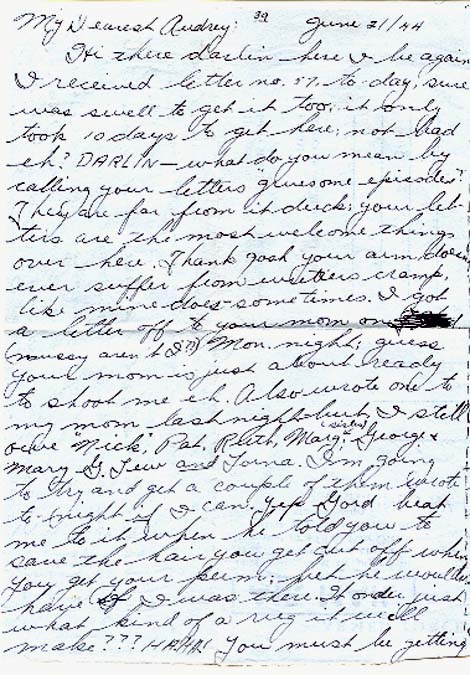 39
My Dearest Audrey: June 21/44
Hi there darlin here I be again
I received letter no. 17. to-day, sure
was swell to get it too, it only
took 10 days to get here; not bad
eh? DARLIN — what do you mean by
calling your letters "gruesome episodes"?
They are far from it duck; your let-
ters are the most welcome things
over here. Thank gosh your arm doesn
ever suffer from writters cramp,
like mine does sometimes. I got
a letter off to your mom on
(mussy aren't I??) Mon. night; guess
your mom is just about ready
to shoot me eh. Also wrote one to
my mom last night but, I still
owe "Mick", Pat, Ruth, Marg, (sister) George &
Mary G. Tew and Lorna. I'm going
to try and get a couple of them wrote
to-night if I can. Yep Gord beat
me to it when he told you to
save the hair you get cut off when
you get your perm; bet he wouldn
have if I was there. Wonder just
what kind of a rug it will
make??? HAHA! You must be getting